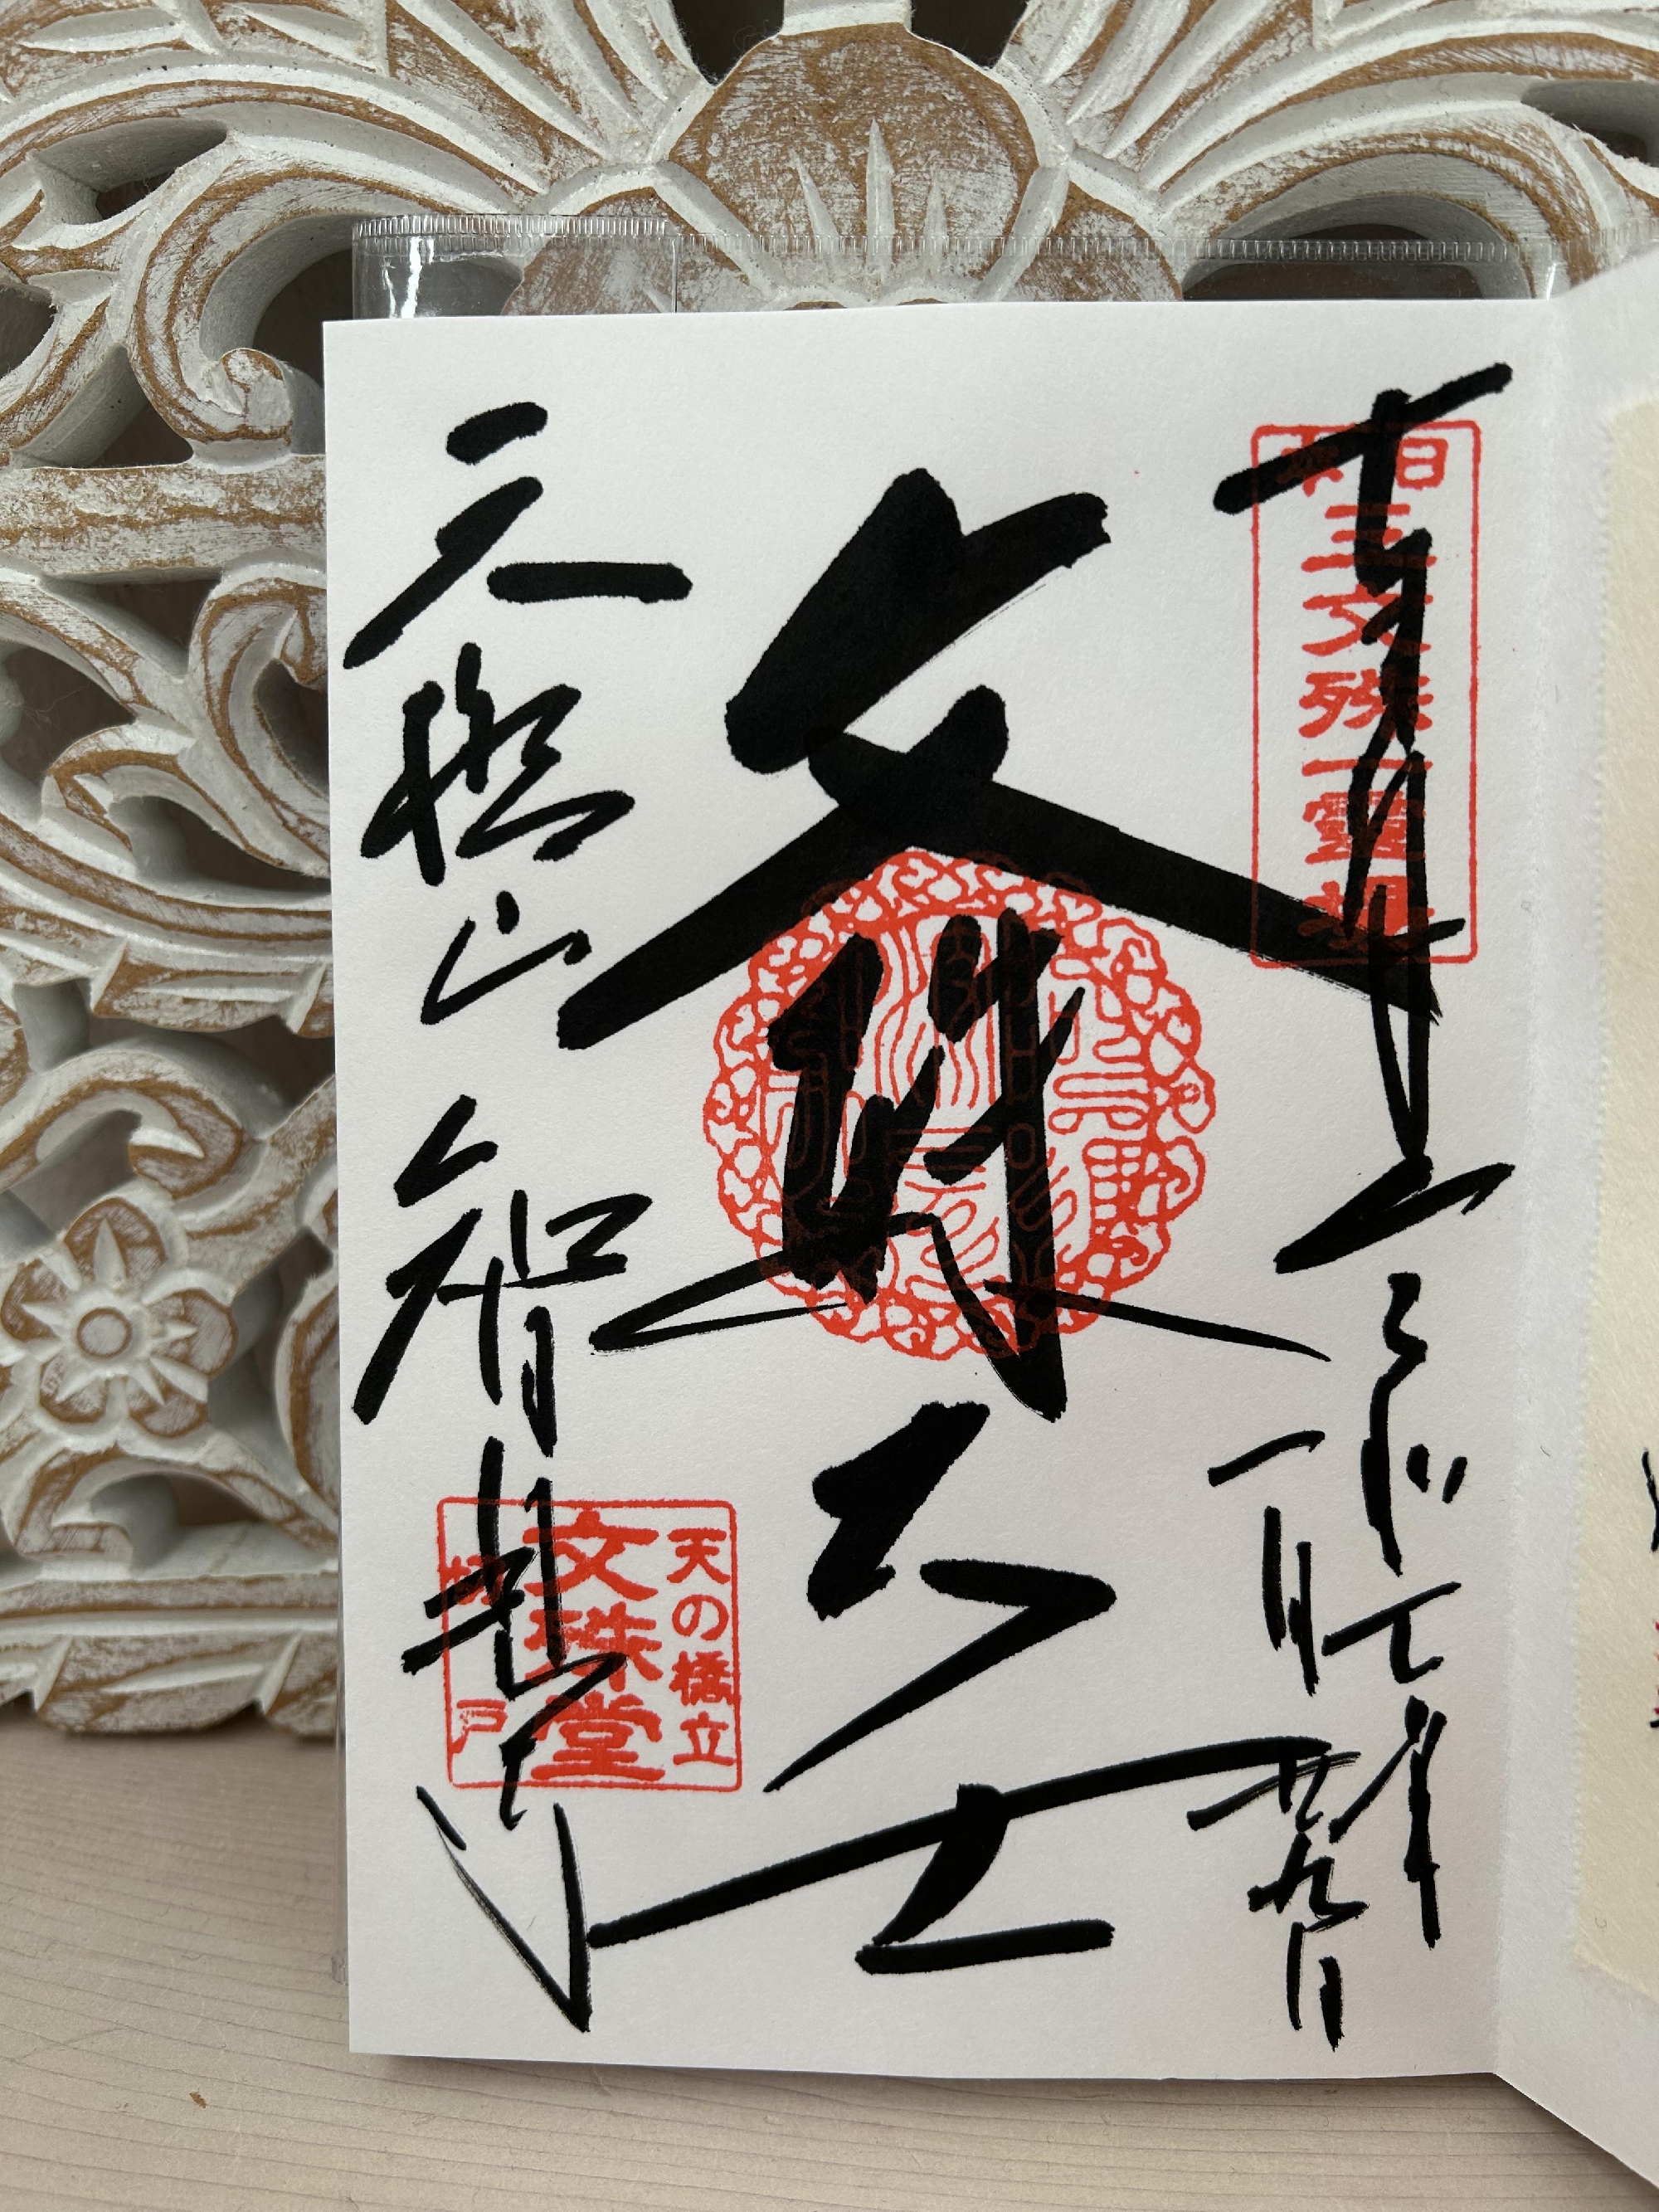 奉拝
令和七年
一月廿九日
日本三文殊一霊場
文殊大士
天橋山
智恩寺
天の橋立
文殊堂
切戸